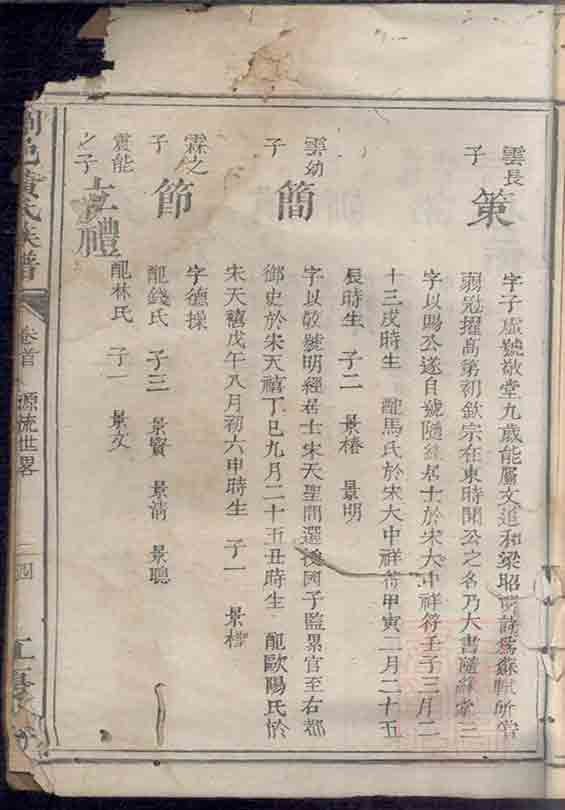 雲長
子
策
字子虛號敬堂九歲能屬文追和梁昭明詩爲蘇軾所賞
弱冠擢高第初欽宗在東時聞公之名乃大書隨緣堂三
字以賜公遂自號隨緣居士於宋大中祥符壬子三月二
十三戌時生 配馬氏於宋大中祥符甲寅二月二十五
辰時生 子二 景椿 景明
雲幼
子
簡
字以敬號明經居士宋天聖間選拔國子監累官至右都
御史於宋天禧丁巳九月二十五丑時生 配歐陽氏於
宋天禧戊午八月初六申時生 子一 景
霖之
子
節
字德操
配錢氏 子三 景賢 景清 景聰
震能
之子
立禮
配林氏 子一 景文
邑黃氏族譜
卷首 源流世畧
二四
江夏